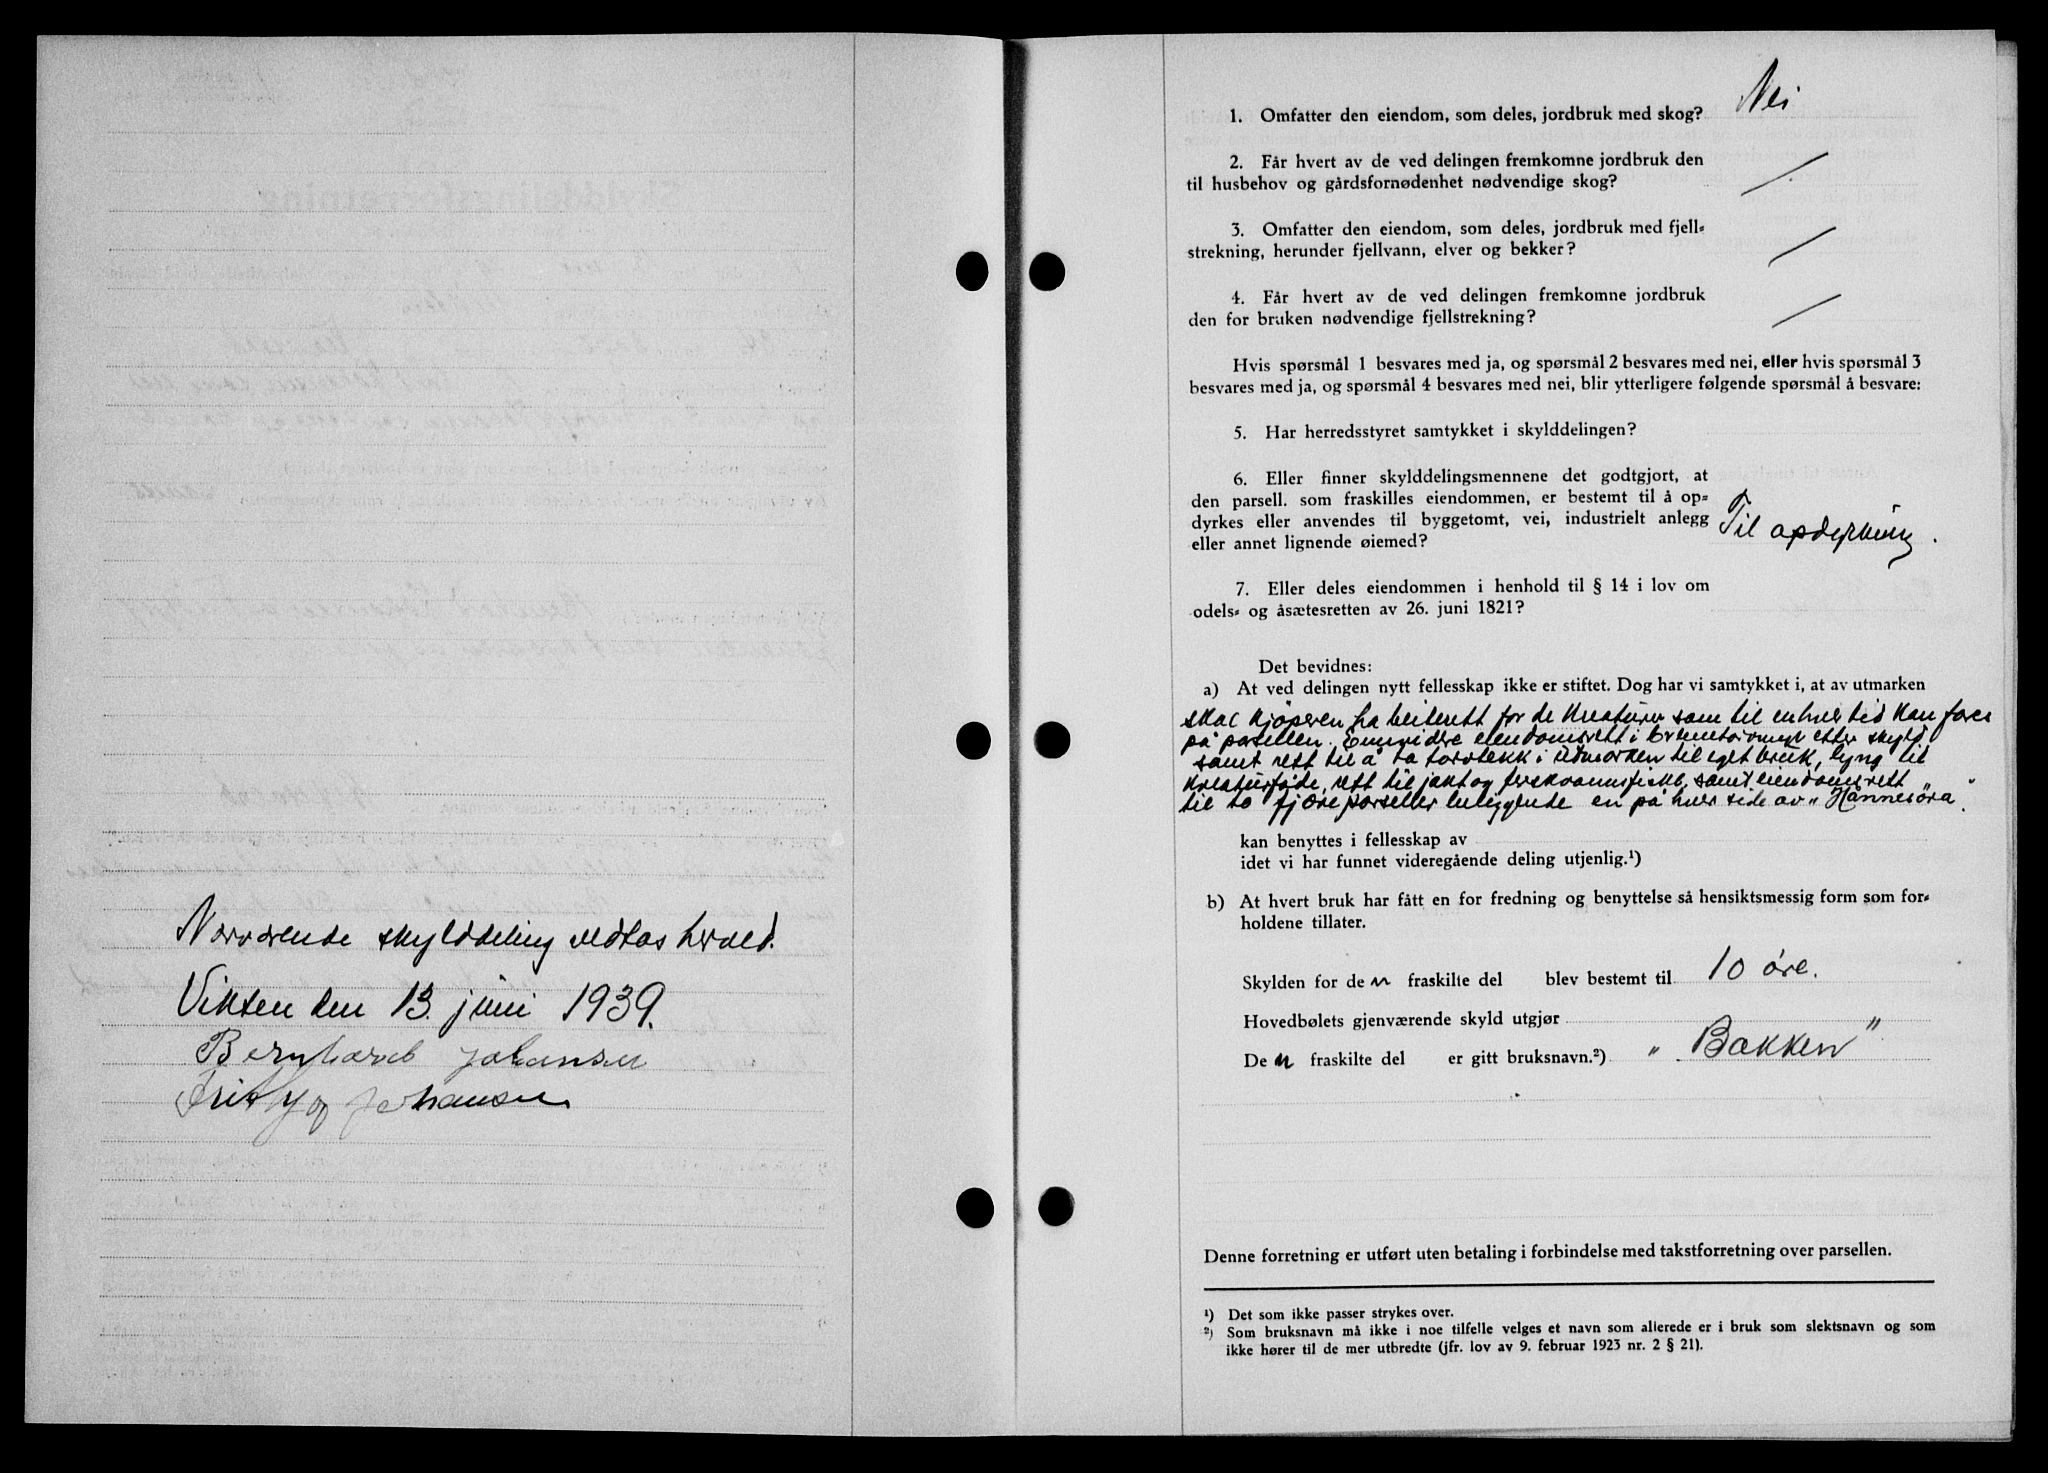 Nærværende skylddeling vedtas herved.
Vikten den 13. juni 1939.
Bernhard Johansen
Fritjof Johansen
Nei
1. Omfatter den eiendom, som deles, jordbruk med skog?
2. Får hvert av de ved delingen fremkomne jordbruk den
til husbehov og gårdsfornødenhet nødvendige skog?
/
3. Omfatter den eiendom, som deles, jordbruk med fjell-
strekning, herunder fjellvann, elver og bekker?
/
4. Får hvert av de ved delingen fremkomne jordbruk
den for bruken nødvendige fjellstrekning?
/
Hvis spørsmål 1 besvares med ja, og spørsmål 2 besvares med nei, eller hvis spørsmål 3
besvares med ja, og spørsmål 4 besvares med nei, blir ytterligere følgende spørsmål å besvare:
5. Har herredsstyret samtykket i skylddelingen?
6. Eller finner skylddelingsmennene det godtgjort, at
den parsell. som fraskilles eiendommen, er bestemt til å op-
dyrkes eller anvendes til byggetomt, vei, industrielt anlegg
eller annet lignende øiemed?
Til opdyrking.
7. Eller deles eiendommen i henhold til § 14 i lov om
odels- og åsætesretten av 26. juni 1821?
Det bevidnes:
a) At ved delingen nytt fellesskap ikke er stiftet. Dog har vi samtykket i, at av utmarken
skal kjøperen ha beiterett for de kreaturer som til enhver tid kan fores
på parsellen. Ennvidere eiendomsrett i brenntorvmyr efter skyld
samt rett til å ta torvtekk i utmarken til eget bruk, lyng til
kreaturføde, rett til jakt og ferskvannsfiske, samt eiendomsrett
til to fjæreparseller beliggende en på hver side av "Hannesøra".
kan benyttes i fellesskap av
idet vi har funnet videregående deling utjenlig.¹)
b) At hvert bruk har fått en for fredning og benyttelse så hensiktsmessig form som for-
holdene tillater.
Skylden for den fraskilte del blev bestemt til 10 øre.
Hovedbølets gjenværende skyld utgjør
Den fraskilte del er gitt bruksnavn.²) "Bakken"
Denne forretning er utført uten betaling i forbindelse med takstforretning over parsellen.
¹) Det som ikke passer strykes over.
²) Som bruksnavn må ikke i noe tilfelle velges et navn som allerede er i bruk som slektsnavn og som
ikke hører til de mer utbredte (jfr. lov av 9. februar 1923 nr. 2 § 21).